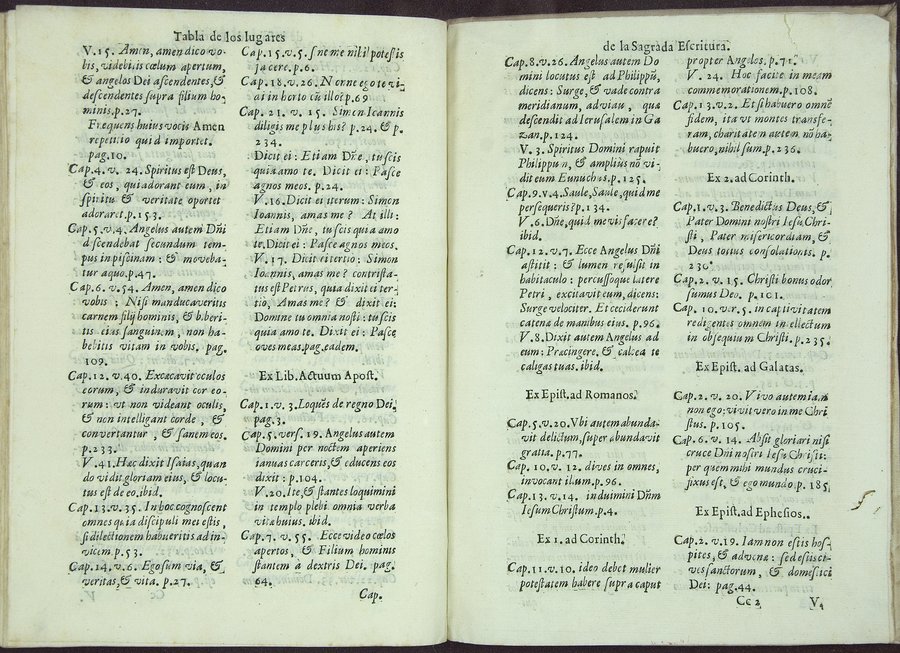 Tabla de los lugares
V. 15. Amen, amen dico vo-
bis, videbitis cœlum apertum,
& angelos Dei ascendentes, &
descendentes supra filium ho-
minis. p.27.
Frequens huius vocis Amen
repetitio quid importet.
pag.10.
Cap.4. v. 24. Spiritus est Deus,
& eos, qui adorant eum, in
spiritu & veritate oportet
adorare. p.153.
Cap.5.v.4. Angelus autem Dñi
descendebat secundum tem-
pus in piscinam : & moveba-
tur aquo. p.47.
Cap.6. v.54. Amen, amen dico
vobis : Nisi manducaveritis
carnem filij hominis, & b.beri-
tis eius sanguinem, non ha-
bebitis vitam in vobis. pag.
109.
Cap.12. v.40. Excæcavit oculos
eorum, & induravit cor eo-
rum : ut non videant oculis,
& non intelligant corde, &
convertantur, & sanem eos.
p.233.
V.41. Hæc dixit Isaias, quan
do vidit gloriam eius, & locu-
tus est de eo. ibid.
Cap.13.v.35. In hoc cognoscent
omnes quia discipuli mei estis,
si dilectionem habueritis ad in-
vicem. p.53.
Cap.14.v.6. Ego sum via, &
veritas, & vita. p.27.
Cc V.
Cap.15.v.5. sine me nihil potestis
facere. p.6.
Cap.18.v.26. Nonne ego te vi-
at in horto cũ illo? p.69
Cap. 21. v. 15. Simon Ioannis
diligis me plus his? p.24. & p.
234.
Dicit ei : Etiam Dñe, tu scis
quia amo te. Dicit ei : Pasce
agnos meos. p.24.
V.16. Dicit ei iterum : Simon
Ioannis, amas me? At ill:
Etiam Dñe, tu scis quia amo
te. Dicit ei : Pasce agnos meos.
V.17. Dicit ei tertio : Simon
Ioannis, amas me? contrista-
tus est Petrus, quia dixit ei ter-
tio, Amas me? & dixit ei:
Domine tu omnia nosti : tu scis
quia amo te. Dixit ei : Pasce
oves meas. pag. eadem.
Ex Lib. Actuum Apost.
Cap.1.v. 3. Loquẽs de regno Dei.
pag.3.
Cap.5. vers. 19. Angelus autem
Domini per noctem aperiens
ianuas carceris, & educens eos
dixit : p.104.
V.20. Ite, & stantes loquimini
in templo plebi omnia verba
vitæ huius. ibid.
Cap.7. v. 55. Ecce video cœlos
apertos, & Filium hominis
stantem à dextris Dei. pag.
64.
Cap.
de la Sagrada Escritura.
Cap.8.v.26. Angelus autem Do
mini locutus est ad Philippũ,
dicens : Surge, & vade contra
meridianum, ad viam, quæ
descendit ad Ierusalem in Ga
zan. p.124.
V. 3. Spiritus Domini rapuit
Philippun, & amplius nõ vi-
dit eum Eunuchos. p.125.
Cap.9.v.4. Saule, Saule, quid me
persequeris? p.134.
V.6. Dñe, quid me vis facere?
ibid.
Cap.12.v.7. Ecce Angelus Dñi
astitit : & lumen refulsit in
habitaculo : percussoque latere
Petri, excitavit eum, dicens:
Surge velociter. Et ceciderunt
catenæ de manibus eius. p.96.
V.8. Dixit autem Angelus ad
eum : Præcingere, & calcea te
caligas tuas. ibid.
Ex Epist. ad Romanos.
Cap.5.v.20. Vbi autem abunda-
vit delictum, super abundavit
gratia. p.77.
Cap. 10. v. 12. dives in omnes,
invocant illum. p.96.
Cap.13. v.14. induimini Dñm
Iesum Christum. p.4.
Ex 1. ad Corinth.
Cap.11.v.10. ideo debet mulier
potestatem habere supra caput
propter Angelos. p.71.
V. 24. Hoc facite in meam
commemorationem. p.108.
Cap.13.v.2. Et si habuero omnẽ
fidem, ita ut montes transfe-
ram, charitatem autem nõ ha-
buero, nihil sum. p.236.
Ex 2. ad Corinth.
Cap.1.v.3. Benedictus Deus, &
Pater Domini nostri Iesu Chri-
sti, Pater misericordiarum, &
Deus totius consolationis. p.
230.
Cap.2. v. 15. Christi bonus odor
sumus Deo. p.101.
Cap. 10. v.5. in captivitatem
redigentes omnem intellectum
in obsequium Christi. p.235.
Ex Epist. ad Galatas.
Cap.2. v. 20. Vivo autem iam
non ego : vivit vero in me Chri
stus. p.105.
Cap.6. v. 14. Absit gloriari nisi
cruce Dñi nostri Iesu Christi:
per quem mihi mundus cruci-
fixus est, & ego mundo. p.185.
Ex Epist. ad Ephesios.
Cap.2. v.19. Iam non estis hos-
pites, & advenæ : sed estis ci-
ves sanctorum, & domestici
Dei : pag.44.
Cc 2 V.